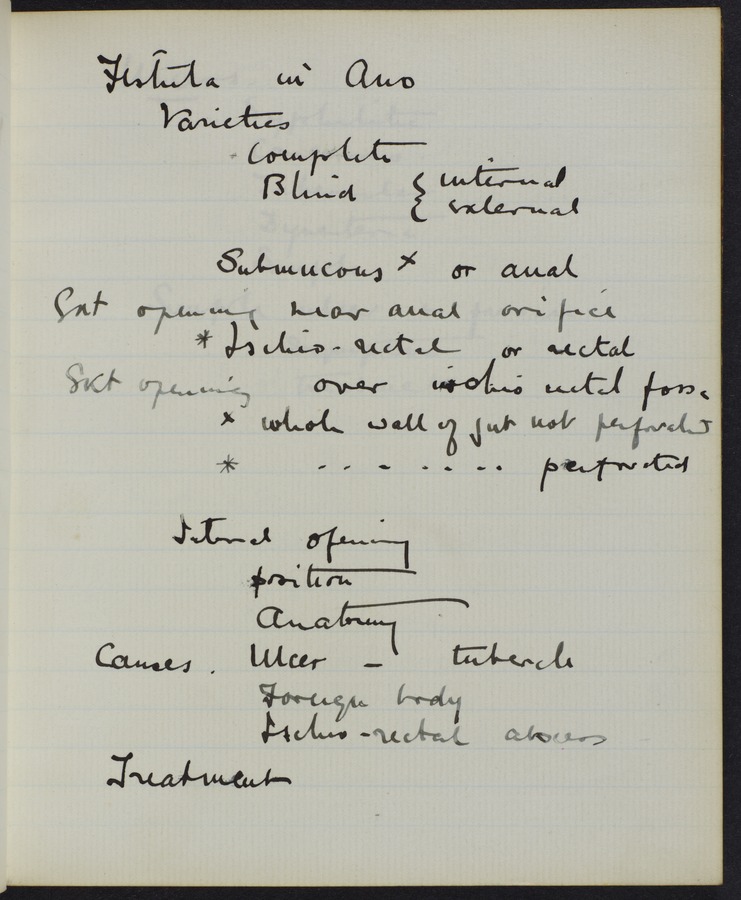 Fistula in Ano
Varieties
Complete
Blind { internal
{ external
Submucous x or anal
Ext opening near anal orifice
* Ischio-rectal or rectal
Ext opening over ischio rectal fossa
x whole wall of gut not perforated
* - - - - - - - perforated
Internal opening
position
Anatomy
Causes. Ulcer - tubercle
Foreign body
Ischio-rectal abscess
Treatment